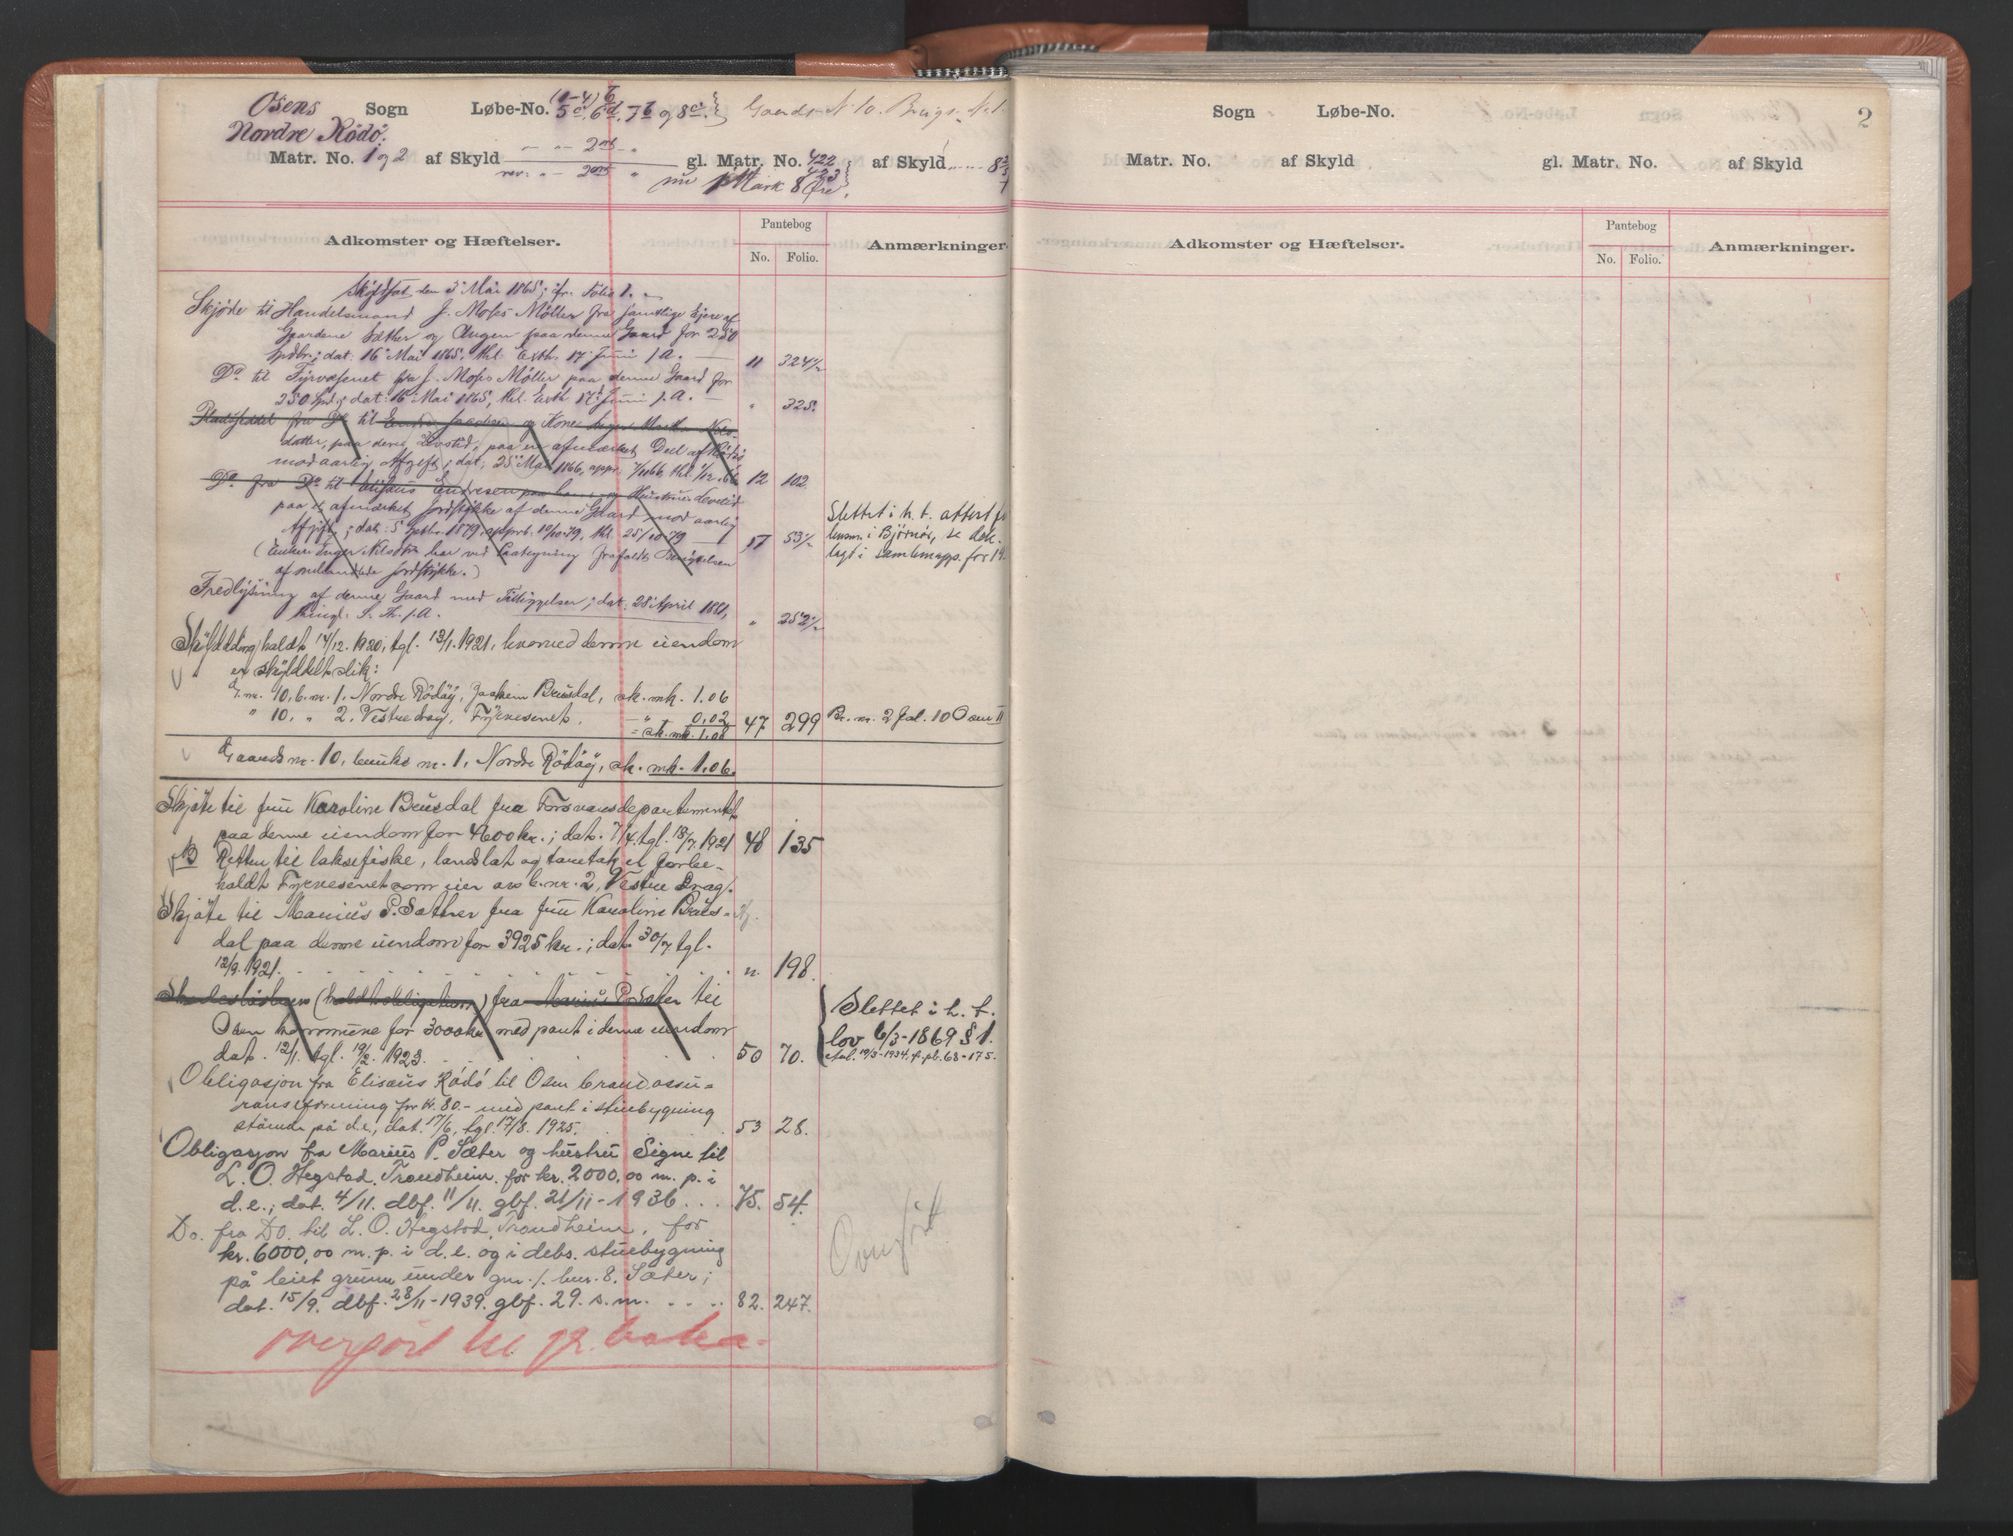 Osens Sogn Løbe-No. (1-4) 5c, 6d, 7b og 8c. Gaards N. 10. Brugs N. 1.
Nordre Rödö.
Matr. No. 1 og 2 af Skyld gl. Matr. No. 422 af Skyld
423
nu Mark 8 Øre,
Pantebog
Adkomster og Hæftelser. Anmærkninger
No. Folio.
Skyldsat den 3 Mai 1865; jfr. Folio 1.
Skjøde til Handelsmand J. Moses Möller fra samtlige Ejere af
Gaardene Sæther og Angen paa denne Gaard for 250
Spdlr; dat. 16 Mai 1865, thl. Exth. 17 Juni s. A. 11 324½
Do til Fyrvæsnet fra J. Moses Möller paa denne Gaard for
250 Spd; dat. 16 Mai 1865, thl. Exth 17 Juni s. A. " 325.
Pladsseddel fra Do til Endre Jacobsen og Kone
datter, paa deres Levetid, paa en afmærket Deel af Rödö
mod aarlig Afgift; dat. 25 Mai 1866, 12 102.
Do fra Do til Elisæus Endresen paa hans og Hustrues Levetid
paa et afmærket Jordstykke af denne Gaard mod aarlig
Afgift; dat. 5 Septbr. 1879, approb. 10/10 79, thl. 25/10 79 17 53½
(Enken Inger Nilsdtr har ved Paategning frafaldt Benyttelsen
af omhandlede Jordstykke.)
Slettet i h. t. attest fr
lensm. i Bjørnør, se dok.
lagt i samlemapp. for 19
Fredlysning af denne Gaard med Tilliggelser; dat. 28 April 1881,
thingl. S. Th. s. A. " 252½
Skylddeling holdt 14/12. 1920, tgl. 13/1. 1921, hvorved denne eiendom
er skyldelt slik:
G. nr. 10, b. nr. 1. Nordre Rödöy, Joakim Brusdal, sk. mk. 1.06
" 10, " 2. Vestre drag, Fyrvesenet, - " - 0,02
= sk. mk. 1.08 47 299 Br. nr. 2 fol. 10 Osen II
Gaards nr. 10, bruks nr. 1, Nordre Rödöy, sk. mk. 1.06.
Skjöte til fru Karoline Brusdal fra Forsvarsdepartementet
paa denne eiendom for 4600 kr.; dat. 7/4. tgl. 18/7 1921 48 135
NB Retten til laksefiske, landslot og taretak er forbe-
holdt Fyrvesenet som eier av b. nr. 2, Vestre Drag.
Skjöte til Marius P. Sæther fra fru Karoline Brus-
dal paa denne eiendom for 3925 kr.; dat. 30/7 tgl.
12/9. 1921. " 198.
Skadesløsbrev (holdt obligation) fra Marius P. Sæter til
Osen kommune for 3000 kr med pant i denne eiendom
dat. 12/1. tgl. 19/2. 1923. 50 70.
Slettet i h. t.
lov 6/3-1869 § 1.
Avl. 19/3-1934. f. pb. 68-175.
Obligasjon fra Elisæus Rödö til Osen brandassu-
ranseforening for kr. 80.- med pant i stuebygning
stående på d.e., dat. 17/6. tgl. 17/8. 1925. 53 28.
Obligasjon fra Marius P. Sæter og hustru Signe til
L. O. Hegstad, Trondheim, for kr. 2000,00 m. p. i
d.e.; dat. 4/11. dbf. 11/11. gbf. 21/11-1936 . . . 75. 54.
Do. fra Do. til L. O. Hegstad, Trondheim, for
kr. 6000,00 m. p. i d.e. og i debs. stuebygning
på leiet grunn under gnr. 1. bnr. 8. Sæter;
dat. 15/9. dbf. 28/11-1939. gbf. 29. s. m. . . . . 82. 247.
Overfört
overfört til gr. boka.
2
Sogn Løbe-No.
Matr. No. af Skyld gl. Matr. No. af Skyld
Pantebog
Adkomster og Hæftelser. Anmærkninger.
No. Folio.